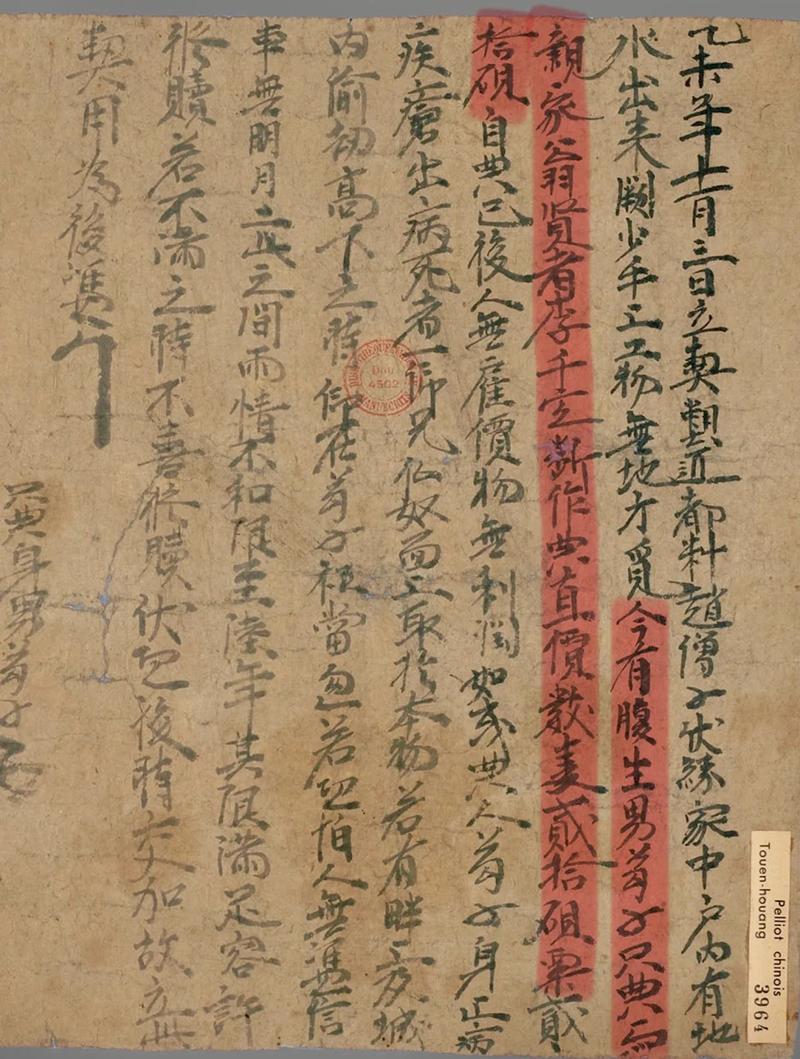 乙未年十一月三日立契塑匠都料趙僧子伏緣家中戶內有地
水出来闕少手上工物無地方覓今有腹生男苟子只典与
親家翁賢者李千定斷作典直價數麦貳拾碩粟貳
拾碩自典已後人無雇價物無利潤如或典人苟子身上病
疾瘡出病死者一仰兄仏奴面上取於本物若有畔上及城
內偷劫高下之時仰在苟子祗當忽若恐怕人無憑信
車無明月二此之間兩情不和限至陸年其限滿足容許
修贖若不滿之時不喜修贖伏恐後時交加故立此
契用為後憑
只典身男苟子
Pelliot chinois
Touen-houang 3964